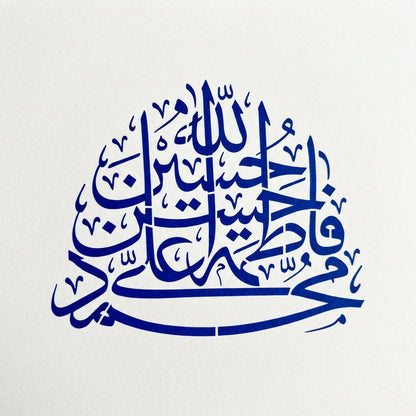 الله
حسین
حسن
فاطمه علی
محمد